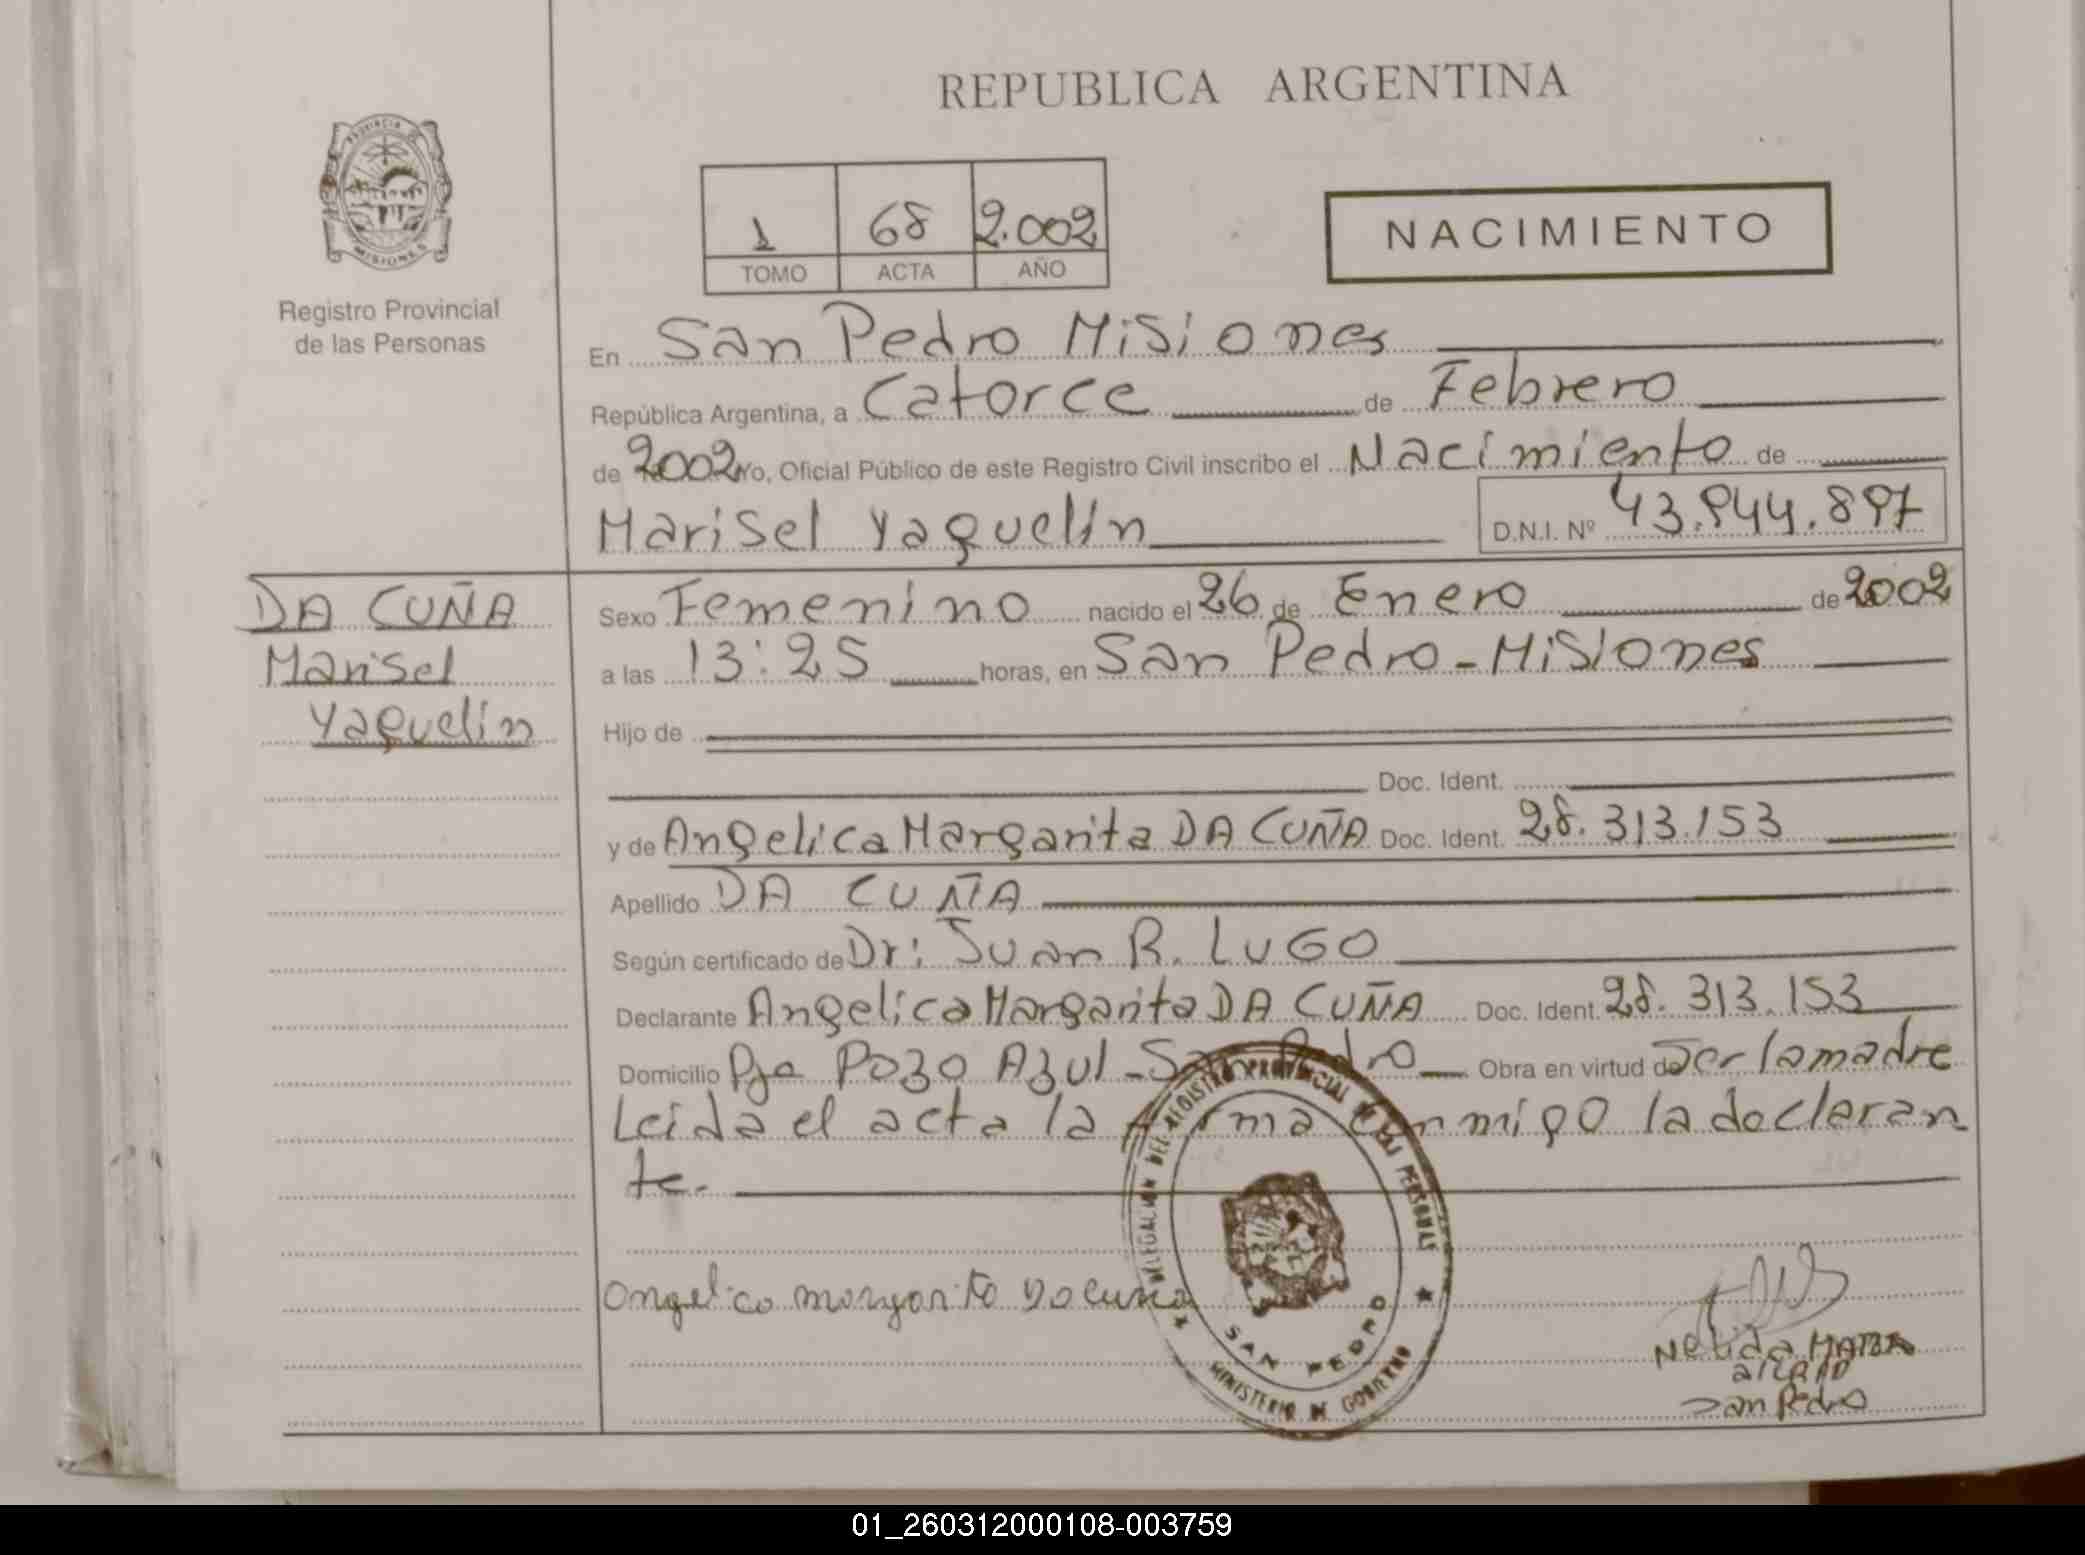 REPUBLICA ARGENTINA
PROVINCIA DE MISIONES
Registro Provincial
de las Personas
1 68 2.002
TOMO ACTA AÑO
NACIMIENTO
En San Pedro Misiones
República Argentina, a Catorce de Febrero
de 2002 Yo, Oficial Público de este Registro Civil inscribo el Nacimiento de
Marisel Yaquelin D.N.I. Nº 43.944.897
DA CUÑA
Marisel
Yaquelin
Sexo Femenino nacido el 26 de Enero de 2002
a las 13:25 horas, en San Pedro - Misiones
Hijo de
Doc. Ident.
y de Angelica Margarita DA CUÑA Doc. Ident. 28.313.153
Apellido DA CUÑA
Según certificado de Dr: Juan R. LUGO
Declarante Angelica Margarita DA CUÑA Doc. Ident. 28.313.153
Domicilio Pje Pozo Azul - San Pedro Obra en virtud de Ser la madre
Leida el acta la firma conmigo la declaran
te.
DELEGACION DEL REGISTRO PROVINCIAL DE LAS PERSONAS
SAN PEDRO
MINISTERIO DE GOBIERNO
Angelica Margarita Da cuña
Nelida
San Pedro
01_260312000108-003759